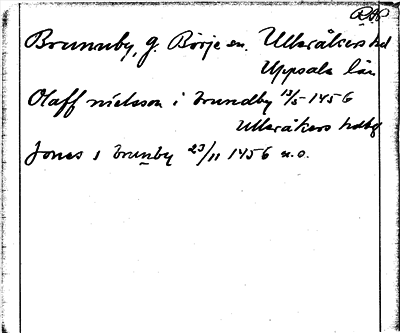 Brunnby, g. Börje sn. Ulleråkers hd
Uppsala län
Olaff nielsson i brundby 13/5 1456
Ulleråkers hdbg
Jones i brunby 23/11 1456 n.o.